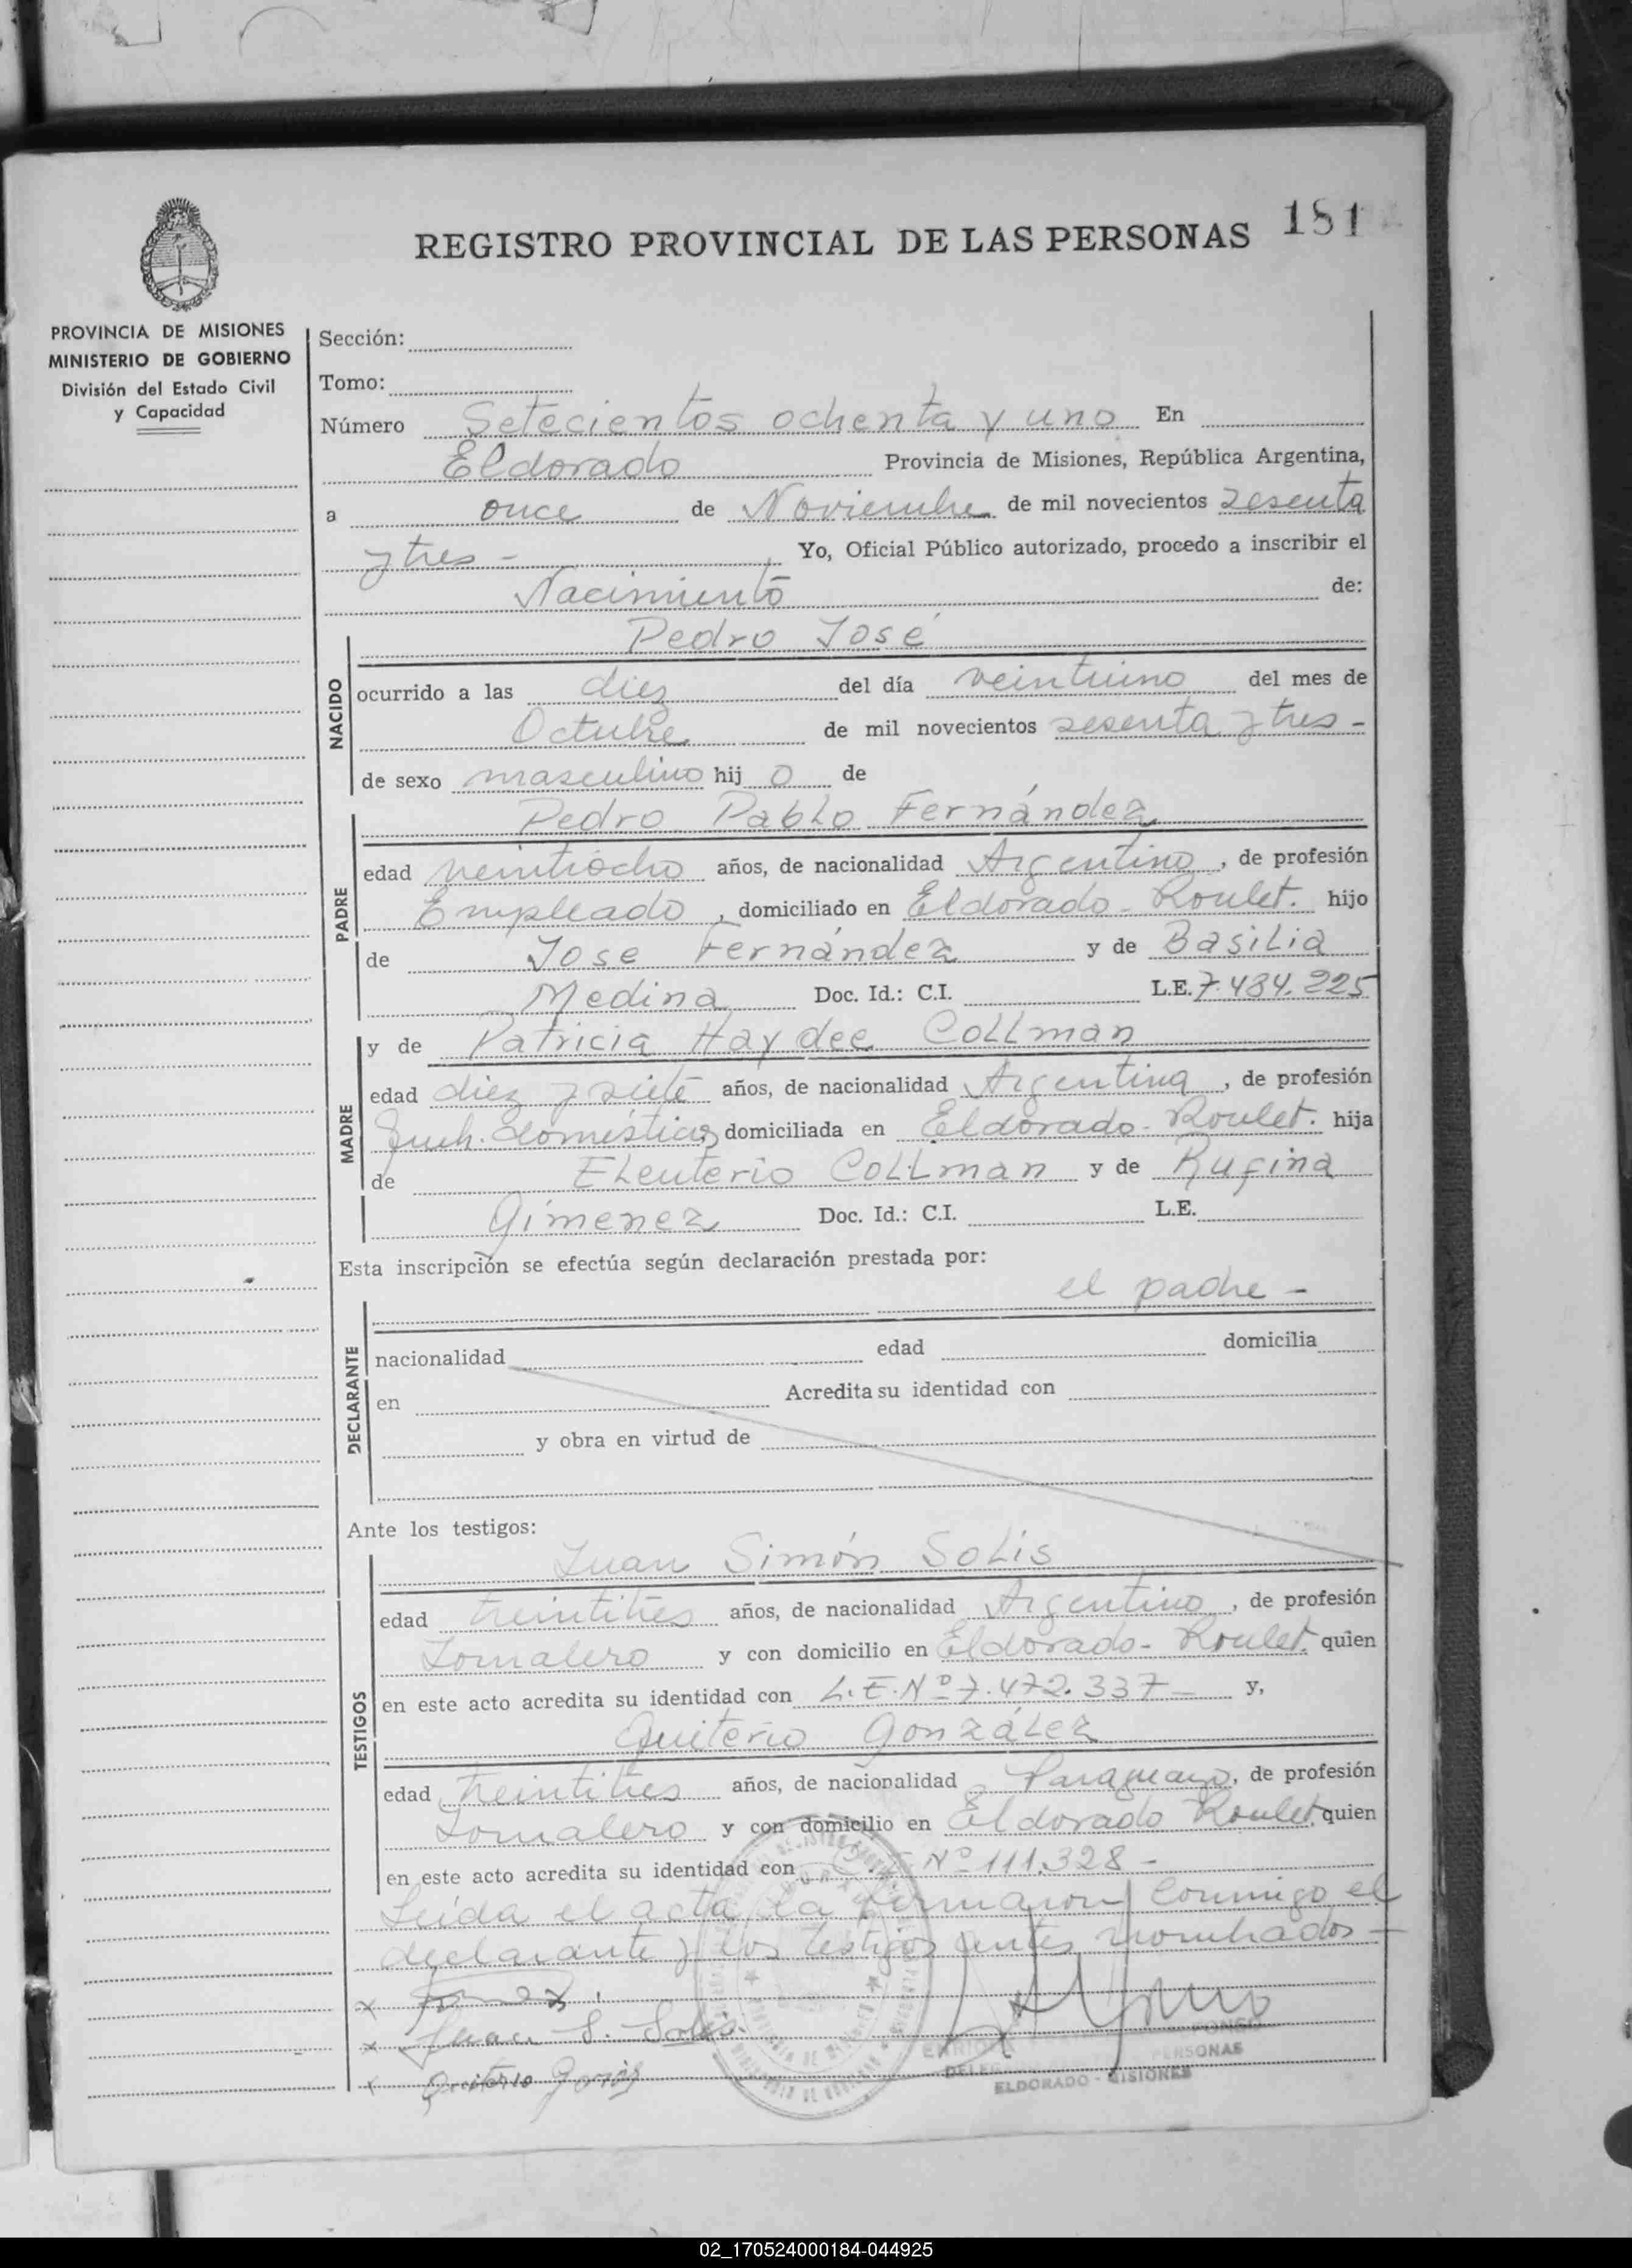 REGISTRO PROVINCIAL DE LAS PERSONAS 181
PROVINCIA DE MISIONES
MINISTERIO DE GOBIERNO
División del Estado Civil
y Capacidad
Sección:
Tomo:
Número Setecientos ochenta y uno En
Eldorado Provincia de Misiones, República Argentina,
a once de Noviembre de mil novecientos sesenta
y tres - Yo, Oficial Público autorizado, procedo a inscribir el
Nacimiento de:
NACIDO
Pedro José
ocurrido a las diez del día veintiuno del mes de
Octubre de mil novecientos sesenta y tres -
de sexo masculino hij o de
PADRE
Pedro Pablo Fernández
edad veintiocho años, de nacionalidad Argentino, de profesión
Empleado, domiciliado en Eldorado - Roulet. hijo
de Jose Fernández y de Basilia
Medina Doc. Id.: C.I. L.E. 7.484.225
MADRE
y de Patricia Haydee Collman
edad diez y siete años, de nacionalidad Argentina, de profesión
domésticos domiciliada en Eldorado - Roulet. hija
de Eleuterio Collman y de Rufina
Gimenez Doc. Id.: C.I. L.E.
Esta inscripción se efectúa según declaración prestada por:
el padre -
DECLARANTE
nacionalidad edad domicilia
en Acredita su identidad con
y obra en virtud de
Ante los testigos:
TESTIGOS
Juan Simón Solis
edad treintitres años, de nacionalidad Argentino, de profesión
Jornalero y con domicilio en Eldorado - Roulet. quien
en este acto acredita su identidad con L.E. Nº 7.472.337 - y,
Quiterio González
edad treintitres años, de nacionalidad Paraguayo, de profesión
Jornalero y con domicilio en Eldorado Roulet, quien
en este acto acredita su identidad con Nº 111.328 -
Leída el acta, la firmaron conmigo el
declarante y los testigos antes nombrados -
x
x Juan S. Solis
x Quiterio
PERSONAS
ELDORADO - MISIONES
02_170524000184-044925